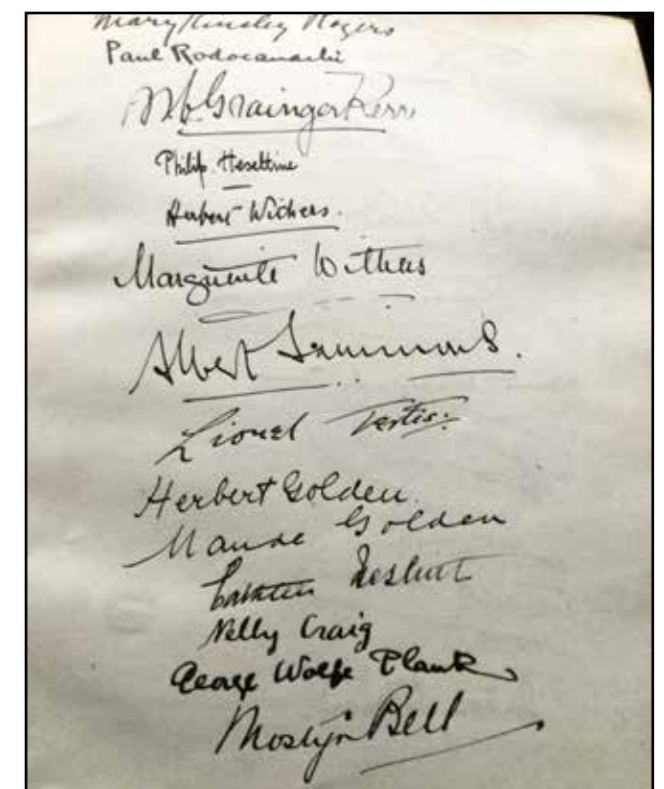 Mary Kinsley Rogers
Paul Rodocanachi
M. Grainger Kerr
Philip Heseltine
Herbert Withers.
Marguerite Withers
Albert Sammons.
Lionel Tertis.
Herbert Golden.
Maude Golden
Cathleen Nesbitt
Nelly Craig
George Wolfe Plank
Mostyn Bell